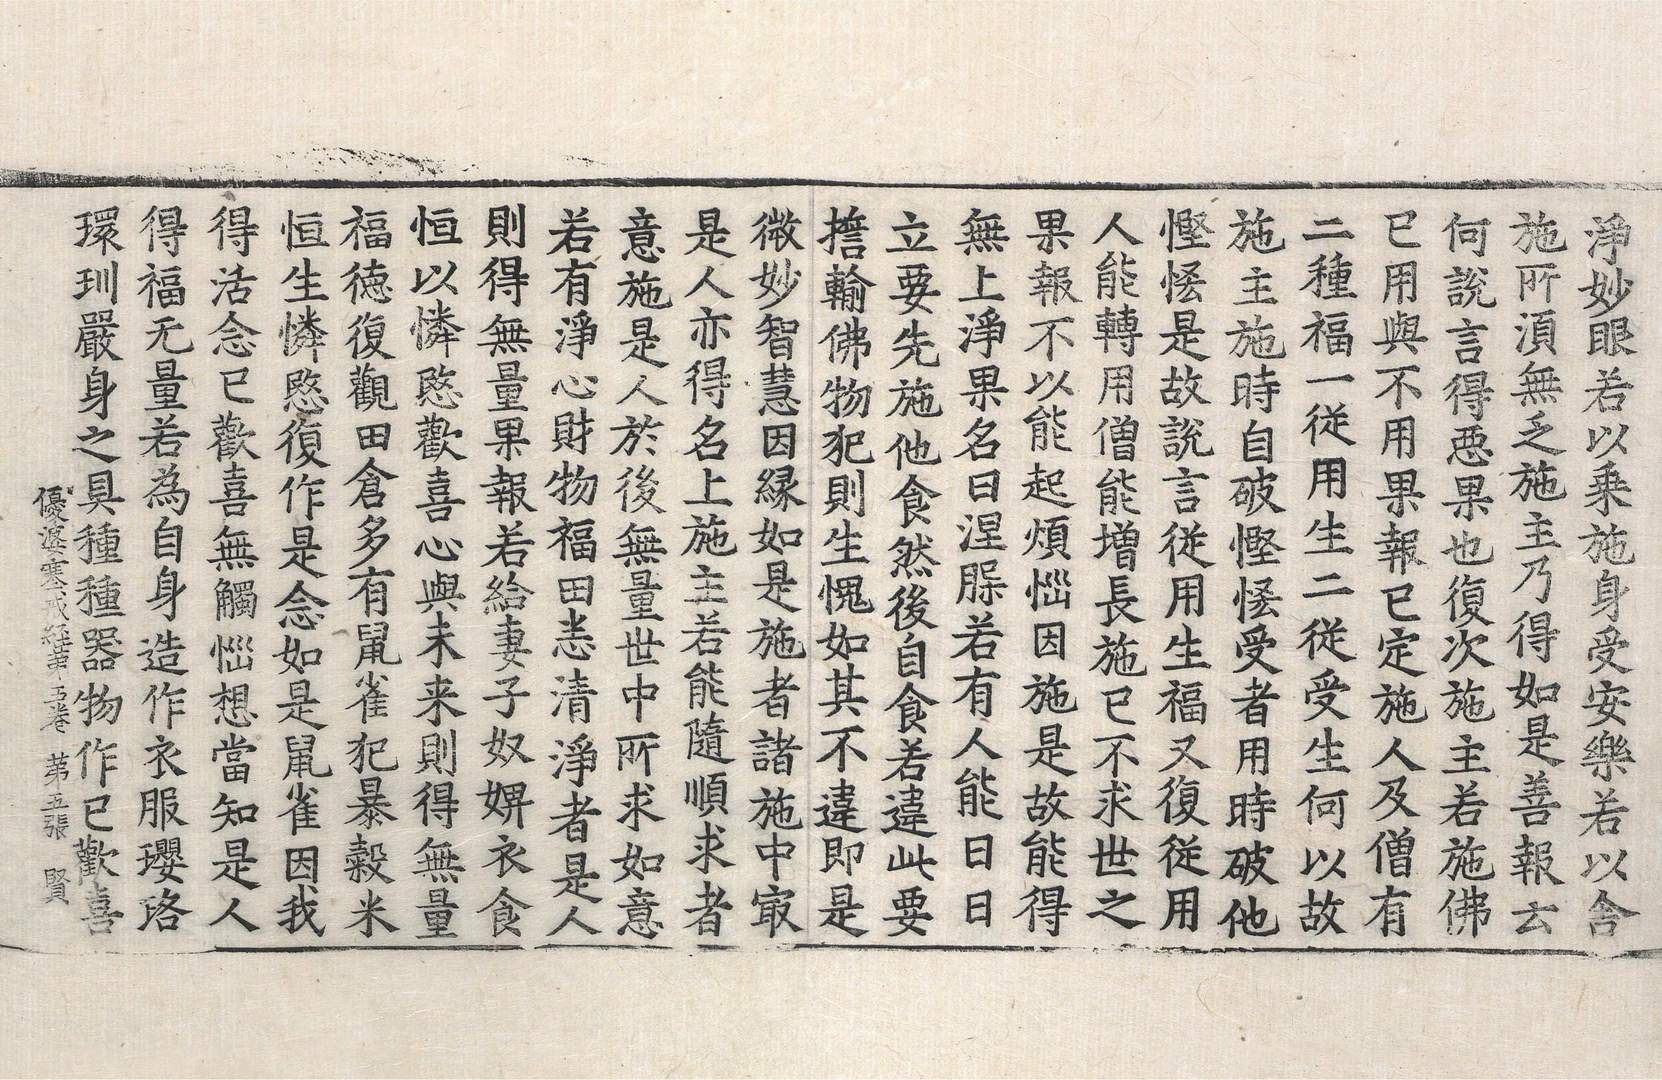 淨妙眼若以乗施身受安樂若以舎
施所湏無乏施主乃得如是善報云
何說言得惡果也復次施主若施佛
已用與不用果報已定施人及僧有
二種福一従用生二従受生何以故
施主施時自破慳悋受者用時破他
慳悋是故說言従用生福又復従用
人能轉用僧能增長施已不求世之
果報不以能起煩惱因施是故能得
無上淨果名曰涅槃若有人能日日
立要先施他食然後自食若違此要
擔輸佛物犯則生愧如其不違即是
微妙智慧因縁如是施者諸施中㝡
是人亦得名上施主若能隨順求者
意施是人於後無量世中所求如意
若有淨心財物福田悉清淨者是人
則得無量果報若給妻子奴婢衣食
恒以憐愍歡喜心與未来則得無量
福德復觀田倉多有鼠雀犯暴穀米
恒生憐愍復作是念如是鼠雀因我
得活念已歡喜無觸惱想當知是人
得福无量若為自身造作衣服瓔珞
環玔嚴身之具種種器物作已歡喜
優婆塞戒経苐五卷 苐五張 賢